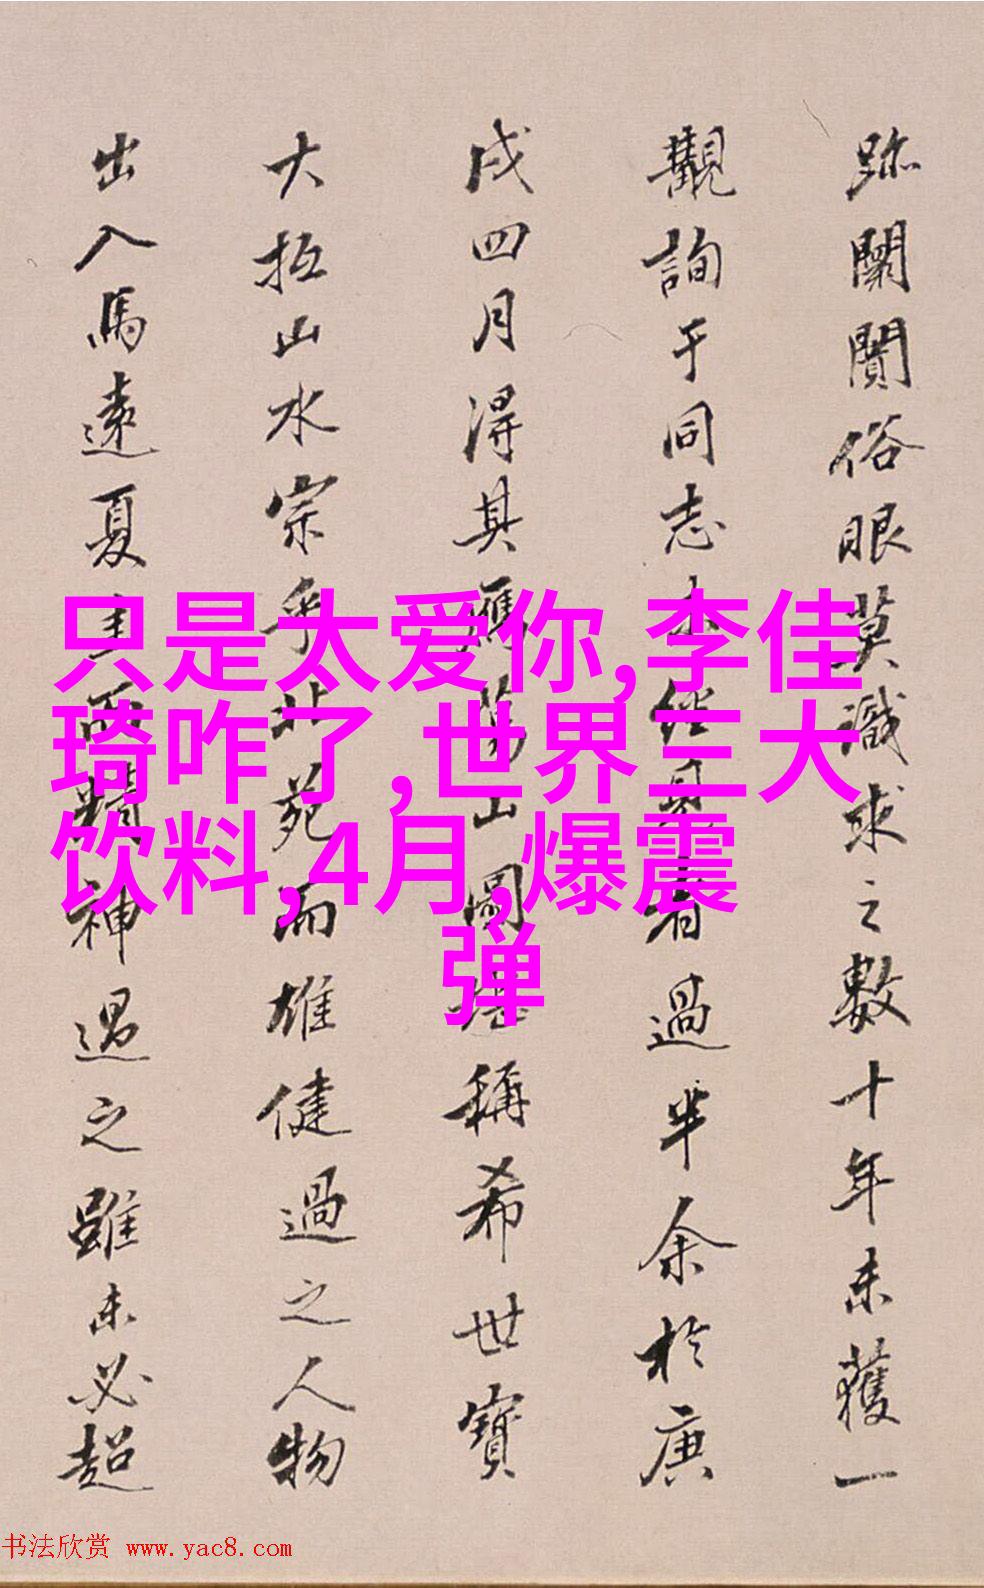 跡闤闠俗眼莫識求之數十年未獲一
觀詢于同志未經見者過半余於庚
戌四月得其雁蕩山圖堪稱希世寶
大抵山水宗乎北苑而雄健過之人物
出入馬遠夏圭而精神過之雖未必超
只是太爱你,李佳
琦咋了,世界三大
饮料,4月,爆震
弹
书法欣赏 www.yac8.com